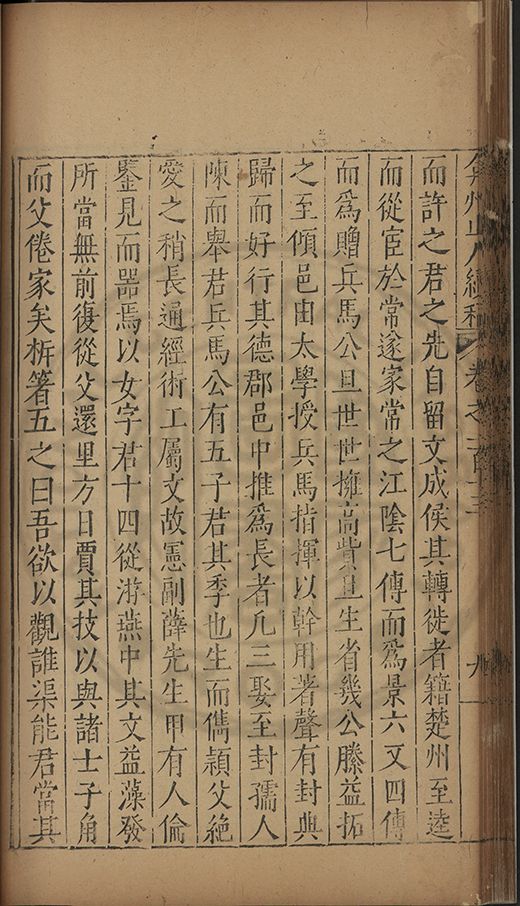 弇州山人續稿 卷之一百十三 九
而許之君之先自留文成侯其轉徙者籍楚州至逵
而從宦於常遂家常之江陰七傳而爲景六又四傳
而爲贈兵馬公旦世世擁高貲旦生省幾公滕益拓
之至傾邑由太學授兵馬指揮以幹用著聲有封典
歸而好行其德郡邑中推爲長者凡三娶至封孺人
陳而舉君兵馬公有五子君其季也生而儁穎父絕
愛之稍長通經術工屬文故憲副薛先生甲有人倫
鑒見而器焉以女字君十四從游燕中其文益藻發
所當無前復從父還里方日賈其技以與諸士子角
而父倦家矣析箸五之曰吾欲以觀誰渠能君當其